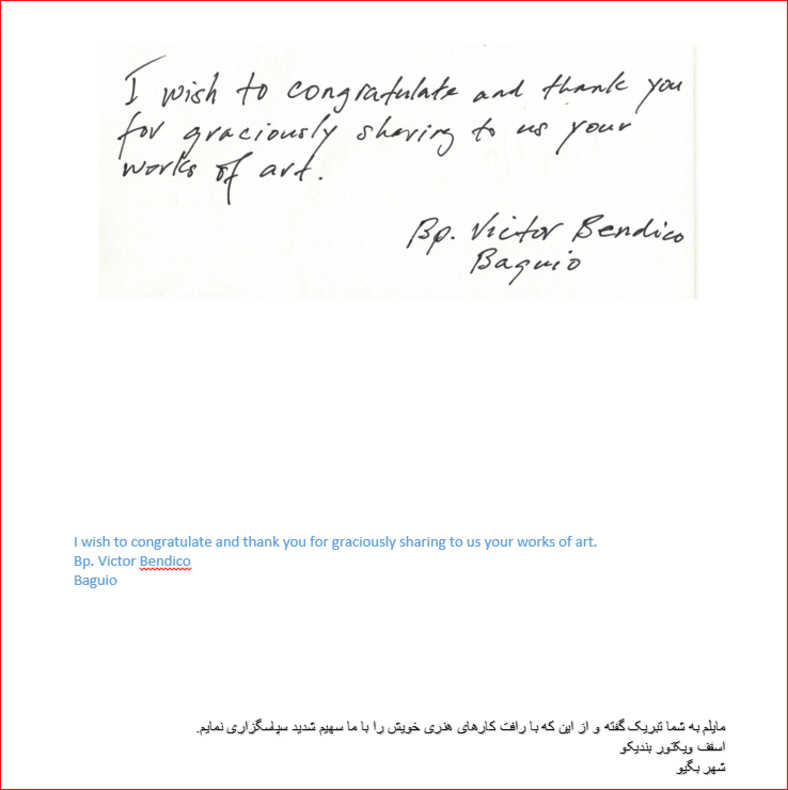 I wish to congratulate and thank you
for graciously sharing to us your
works of art.
Bp. Victor Bendico
Baguio
I wish to congratulate and thank you for graciously sharing to us your works of art.
Bp. Victor Bendico
Baguio
مایلم به شما تبریک گفته و از این که با رافت کارهای هنری خویش را با ما سهیم شدید سپاسگزاری نمایم.
اسقف ویکتور بندیکو
شهر بگیو